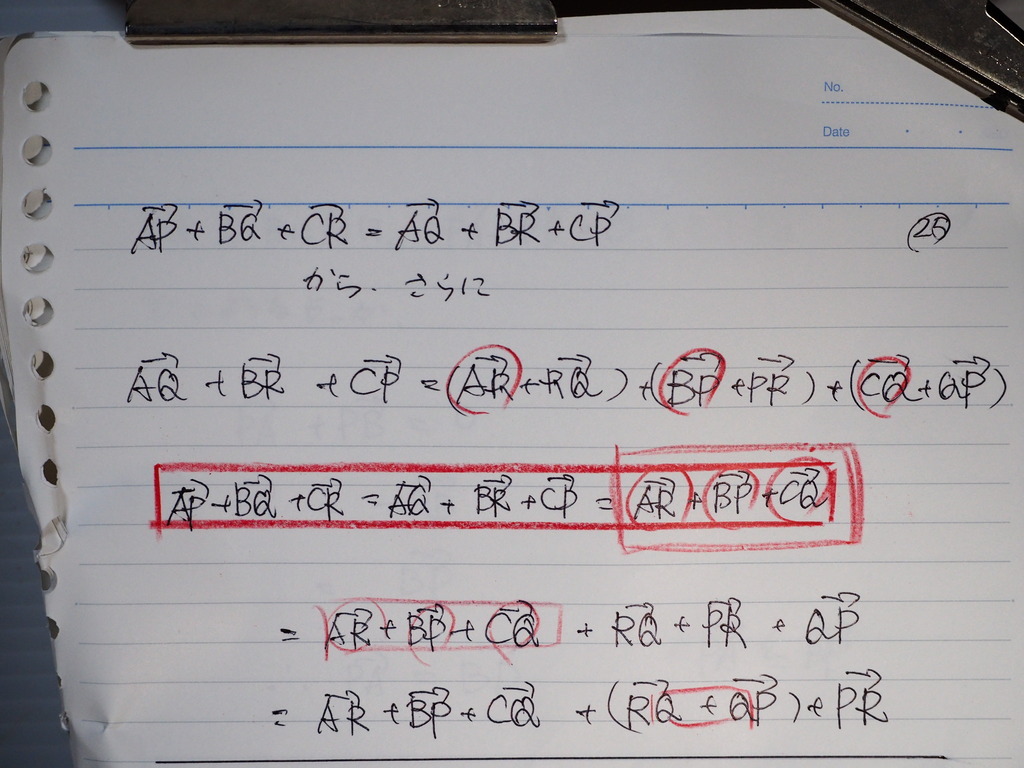 No.
Date
AP→ + BQ→ + CR→ = AQ→ + BR→ + CP→ (25)
から. さらに
AQ→ + BR→ + CP→ = (AR→ + RQ→) + (BP→ + PR→) + (CQ→ + QP→)
AP→ + BQ→ + CR→ = AQ→ + BR→ + CP→ = AR→ + BP→ + CQ→
= AR→ + BP→ + CQ→ + RQ→ + PR→ + QP→
= AR→ + BP→ + CQ→ + (RQ→ + QP→) + PR→